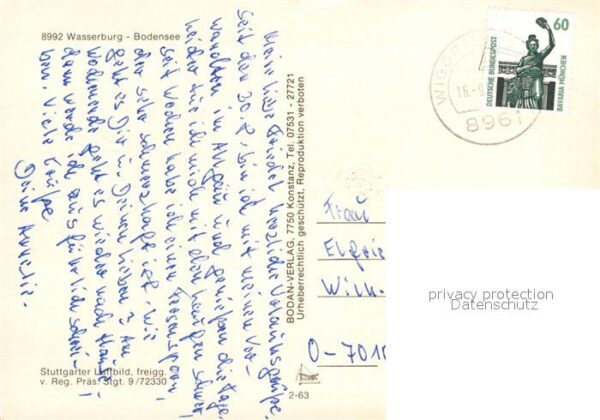 8992 Wasserburg - Bodensee
Meine liebe Friedel, herzliche Urlaubsgrüße.
Seit dem 20.8. bin ich mit meinen Ver-
wandten im Allgäu und genießen die Tage.
Leider tue ich mich mit dem Laufen schwer,
seit Wochen habe ich einen Fersensporn,
der sehr schmerzhaft ist. Wie
geht es Dir u. Deinen Lieben? Am
Wochenende geht es wieder nach Hause,
dann werde ich ausführlich schrei-
ben. Viele Grüße
Deine Annelie.
Stuttgarter Luftbild, freigg.
v. Reg. Präs. Stgt. 9/72330
BODAN-VERLAG, 7750 Konstanz, Tel. 07531 - 27721
Urheberrechtlich geschützt, Reproduktion verboten
2-63
60
DEUTSCHE BUNDESPOST
BAVARIA MÜNCHEN
8961
Frau
Elfrie
Wilh.
O-7010
privacy protection
Datenschutz